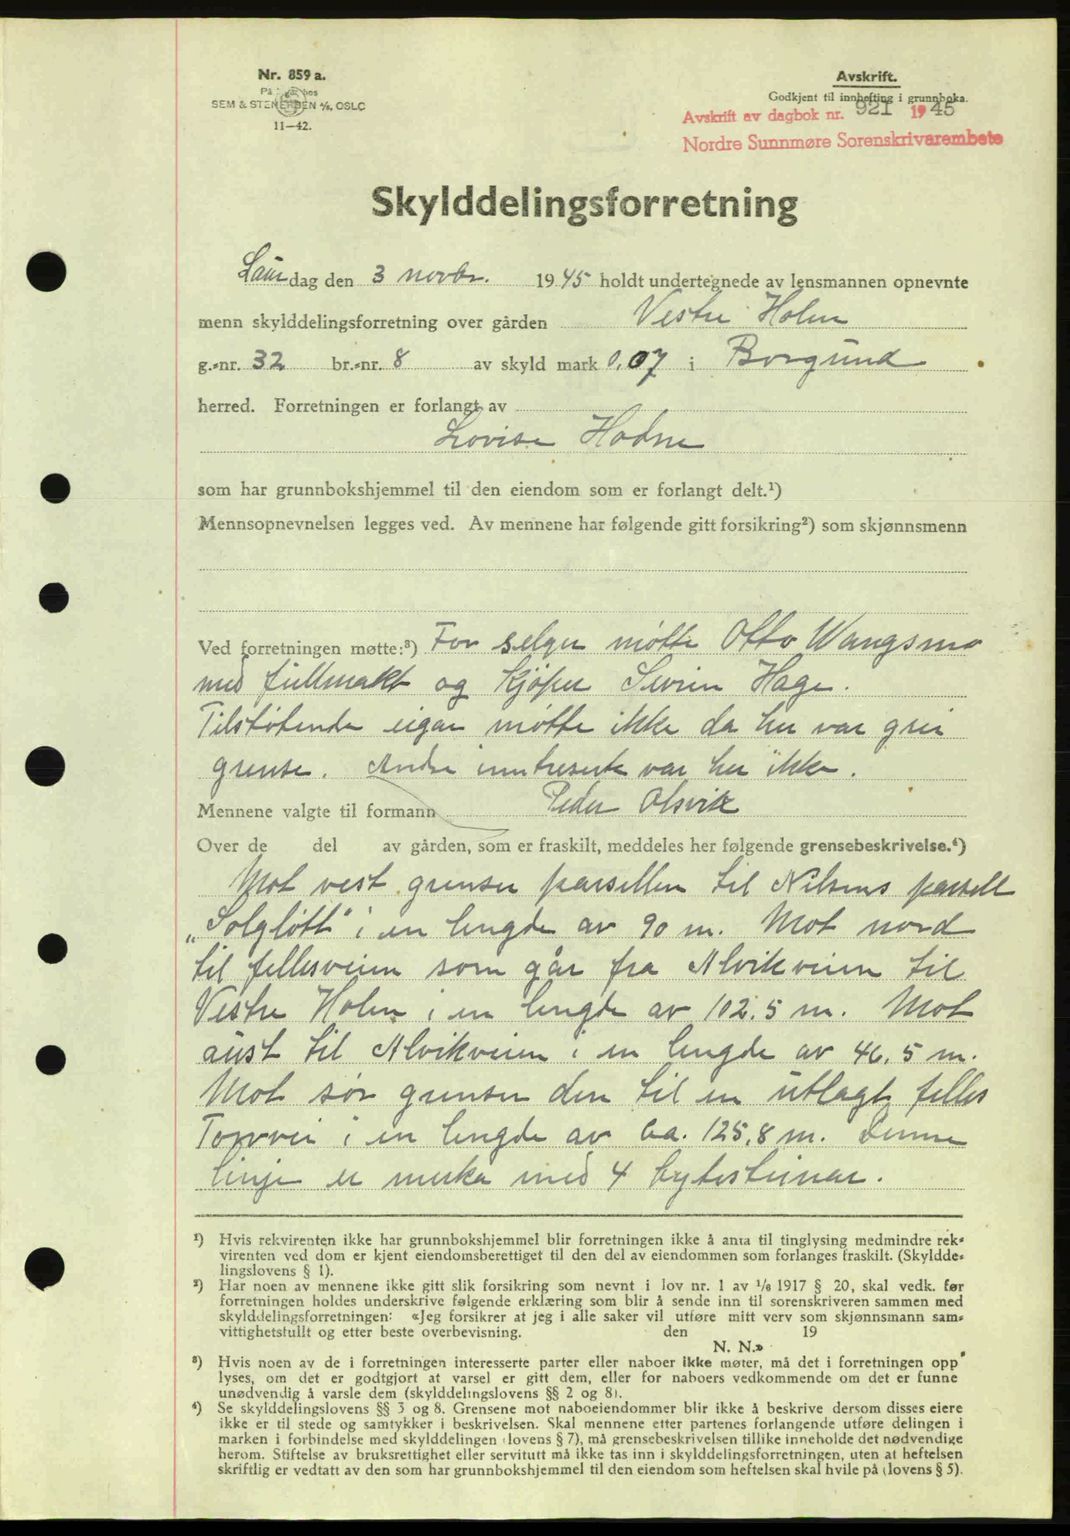 Nr. 859 a.
På lager hos
SEM & STENERSEN A/S, OSLO
11—42.
Avskrift.
Godkjent til innhefting i grunnboka.
Avskrift av dagbok nr. 921 1945
Nordre Sunnmøre Sorenskrivarembete
Skylddelingsforretning
Laurdag den 3 novbr. 1945 holdt undertegnede av lensmannen opnevnte
menn skylddelingsforretning over gården Vestre Holen
g.-nr. 32 br.-nr. 8 av skyld mark 0,07 i Borgund
herred. Forretningen er forlangt av
Lovise Hodne
som har grunnbokshjemmel til den eiendom som er forlangt delt.¹)
Mennsopnevnelsen legges ved. Av mennene har følgende gitt forsikring²) som skjønnsmenn
Ved forretningen møtte:³) For selger møtte Otto Wangsmo
med fullmakt og kjøper Severin Hage.
Tilstøtende eigar møtte ikke da her var grei
grense. Andre inntreserte var her ikke.
Mennene valgte til formann Peder Alsvik
Over de del av gården, som er fraskilt, meddeles her følgende grensebeskrivelse.⁴)
Mot vest grenser parsellen til Nilsens parsell
„Solgløtt" i en lengde av 90 m. Mot nord
til fellesveien som går fra Alvikveien til
Vestre Holen i en lengde av 102,5 m. Mot
aust til Alvikveien i en lengde av 46,5 m.
Mot sør grenser den til en utlagt felles
Torvvei i en lengde av ca. 125,8 m. Denne
linje er merka med 4 bytesteinar.
¹) Hvis rekvirenten ikke har grunnbokshjemmel blir forretningen ikke å anta til tinglysing medmindre rek-
virenten ved dom er kjent eiendomsberettiget til den del av eiendommen som forlanges fraskilt. (Skyldde-
lingslovens § 1).
²) Har noen av mennene ikke gitt slik forsikring som nevnt i lov nr. 1 av ¹/₆ 1917 § 20, skal vedk. før
forretningen holdes underskrive følgende erklæring som blir å sende inn til sorenskriveren sammen med
skylddelingsforretningen: «Jeg forsikrer at jeg i alle saker vil utføre mitt verv som skjønnsmann sam-
vittighetsfullt og etter beste overbevisning. den 19
N. N.»
³) Hvis noen av de i forretningen interesserte parter eller naboer ikke møter, må det i forretningen opp
lyses, om det er godtgjort at varsel er gitt dem, eller for naboers vedkommende om det er funne
unødvendig å varsle dem (skylddelingslovens §§ 2 og 8).
⁴) Se skylddelingslovens §§ 3 og 8. Grensene mot naboeiendommer blir ikke å beskrive dersom disses eiere
ikke er til stede og samtykker i beskrivelsen. Skal mennene etter partenes forlangende utføre delingen i
marken i forbindelse med skylddelingen (lovens § 7), må grensebeskrivelsen tillike inneholde det nødvendige
herom. Stiftelse av bruksrettighet eller servitutt må ikke tas inn i skylddelingsforretningen, uten at heftelsen
skriftlig er vedtatt av den som har grunnbokshjemmel til den eiendom som heftelsen skal hvile på (lovens § 5).